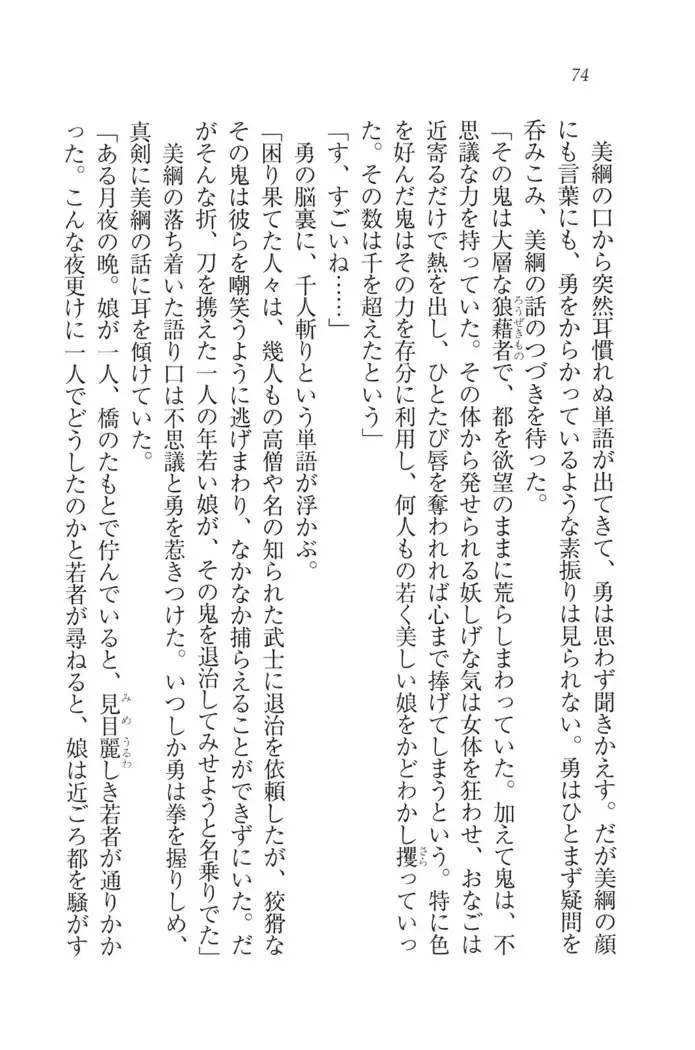 74
美綱の口から突然耳慣れぬ単語が出てきて、勇は思わず聞きかえす。だが美綱の顔
にも言葉にも、勇をからかっているような素振りは見られない。勇はひとまず疑問を
呑みこみ、美綱の話のつづきを待った。
「その鬼は大層な狼藉者で、都を欲望のままに荒らしまわっていた。加えて鬼は、不
思議な力を持っていた。その体から発せられる妖しげな気は女体を狂わせ、おなごは
近寄るだけで熱を出し、ひとたび唇を奪われれば心まで捧げてしまうという。特に色
を好んだ鬼はその力を存分に利用し、何人もの若く美しい娘をかどわかし攫っていっ
た。その数は千を超えたという」
「す、すごいね……」
勇の脳裏に、千人斬りという単語が浮かぶ。
「困り果てた人々は、幾人もの高僧や名の知られた武士に退治を依頼したが、狡猾な
その鬼は彼らを嘲笑うように逃げまわり、なかなか捕らえることができずにいた。だ
がそんな折、刀を携えた一人の年若い娘が、その鬼を退治してみせようと名乗りでた」
美綱の落ち着いた語り口は不思議と勇を惹きつけた。いつしか勇は拳を握りしめ、
真剣に美綱の話に耳を傾けていた。
「ある月夜の晩。娘が一人、橋のたもとで佇んでいると、見目麗しき若者が通りかか
った。こんな夜更けに一人でどうしたのかと若者が尋ねると、娘は近ごろ都を騒がす